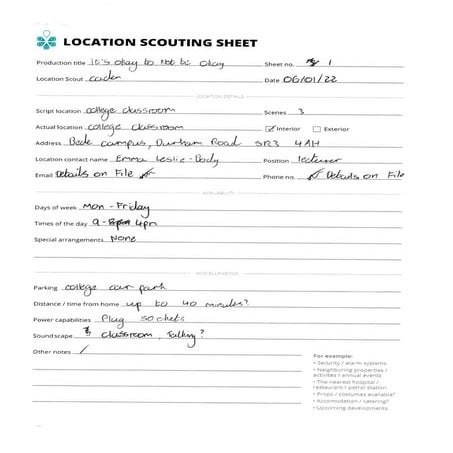 LOCATION SCOUTING SHEET
Production title it's okay to Not be okay Sheet no. 1
Location Scout caden Date 06/01/22
LOCATION DETAILS
Script location college classroom Scenes 3
Actual location college classroom Interior Exterior
Address Bede campus, Durham Road SR3 4AH
Location contact name Emma Leslie-Body Position lecturer
Email Details on File Phone no. Details on File
AVAILABILITY
Days of week Mon - Friday
Times of the day 9 - 4pm
Special arrangements None
MISCELLANEOUS
Parking college car park
Distance / time from home up to 40 minutes?
Power capabilities Plug sockets
Soundscape Classroom, Talking?
Other notes /
For example:
• Security / alarm systems
• Neighboring properties /
activites / annual events
• The nearest hospital /
restaurant / patrol station
• Props / costumes available?
• Accomodation / catering?
• Upcoming developments